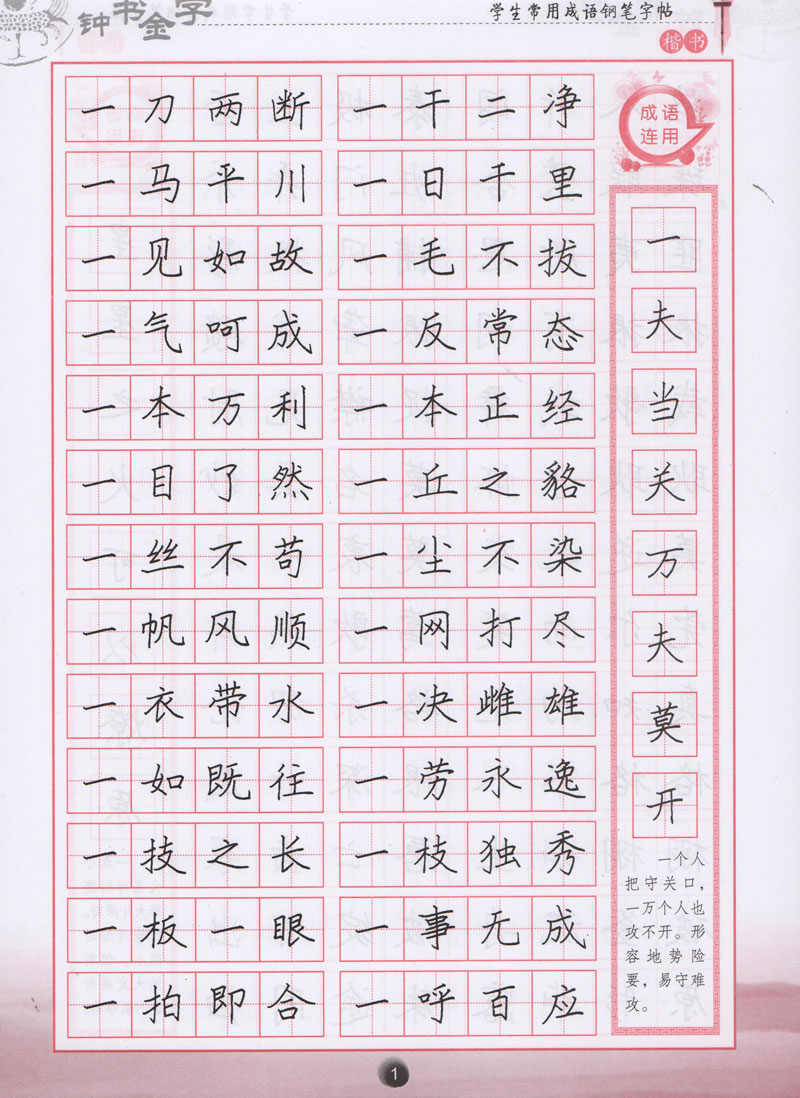 钟书金字
学生常用成语钢笔字帖
楷书
一刀两断 一干二净
一马平川 一日千里
一见如故 一毛不拔
一气呵成 一反常态
一本万利 一本正经
一目了然 一丘之貉
一丝不苟 一尘不染
一帆风顺 一网打尽
一衣带水 一决雌雄
一如既往 一劳永逸
一技之长 一枝独秀
一板一眼 一事无成
一拍即合 一呼百应
成语
连用
一
夫
当
关
万
夫
莫
开
一个人
把守关口,
一万个人也
攻不开。形
容地势险
要,易守难
攻。
1